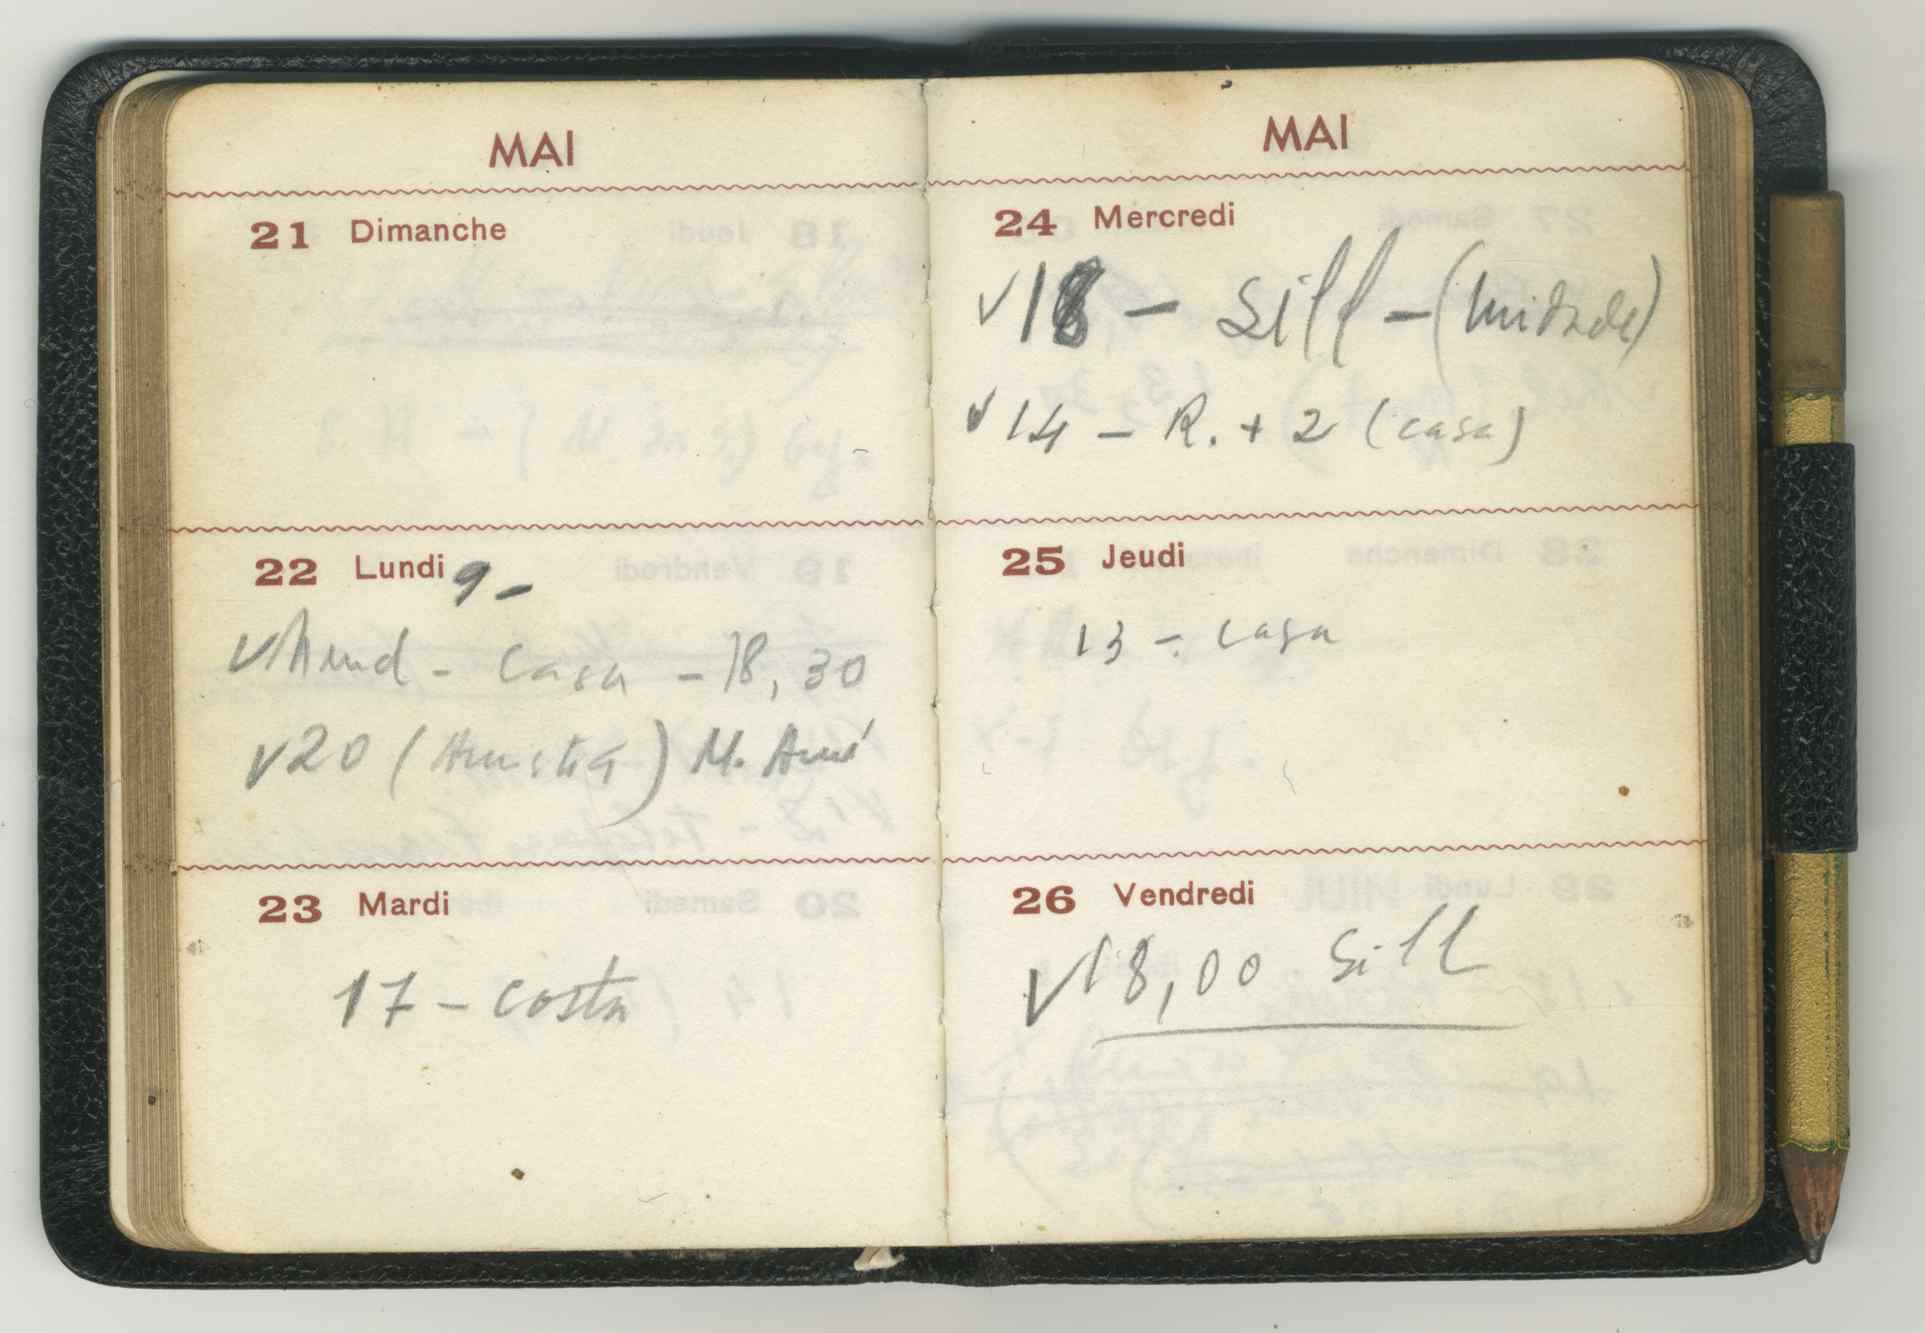 MAI
21 Dimanche
22 Lundi 9 -
- casa - 18,30
V 20 ( ) M.
23 Mardi
17 - costa
MAI
24 Mercredi
V 18 - Sill - (
V 14 - R. + 2 (casa)
25 Jeudi
13 - casa
26 Vendredi
V 18,00 Sill